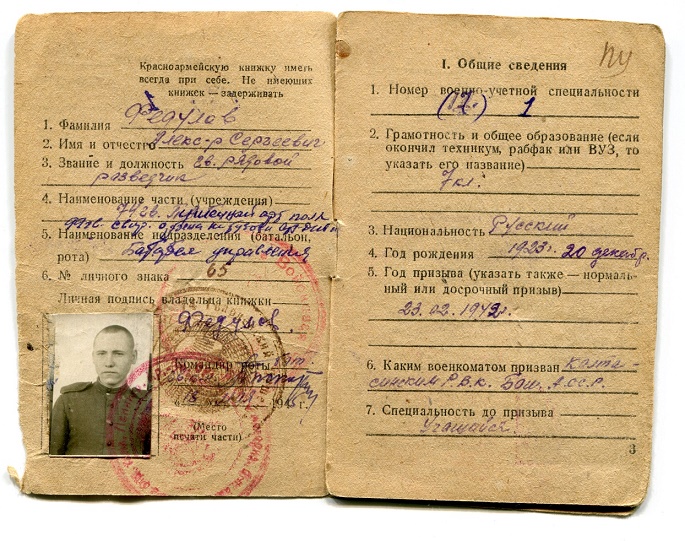 Красноармейскую книжку иметь
всегда при себе. Не имеющих
книжек — задерживать
1. Фамилия Федулов
2. Имя и отчество Алекс-р Сергеевич
3. Звание и должность гв. рядовой
разведчик
4. Наименование части (учреждения)
арт полк
5. Наименование подразделения (батальон,
рота) Батарея управления
6. № личного знака 65
Личная подпись владельца книжки
Федулов.
Командир роты
194 г.
(Место
печати части)
ПУ
I. Общие сведения
1. Номер военно-учетной специальности
1
2. Грамотность и общее образование (если
окончил техникум, рабфак или ВУЗ, то
указать его название)
7 кл.
3. Национальность Русский
4. Год рождения 1923г. 20 декабр.
5. Год призыва (указать также — нормаль-
ный или досрочный призыв)
23.02.1942г.
6. Каким военкоматом призван Калта-
синским Р.В.К. Баш. А.ССР.
7. Специальность до призыва
Учащийся.
3